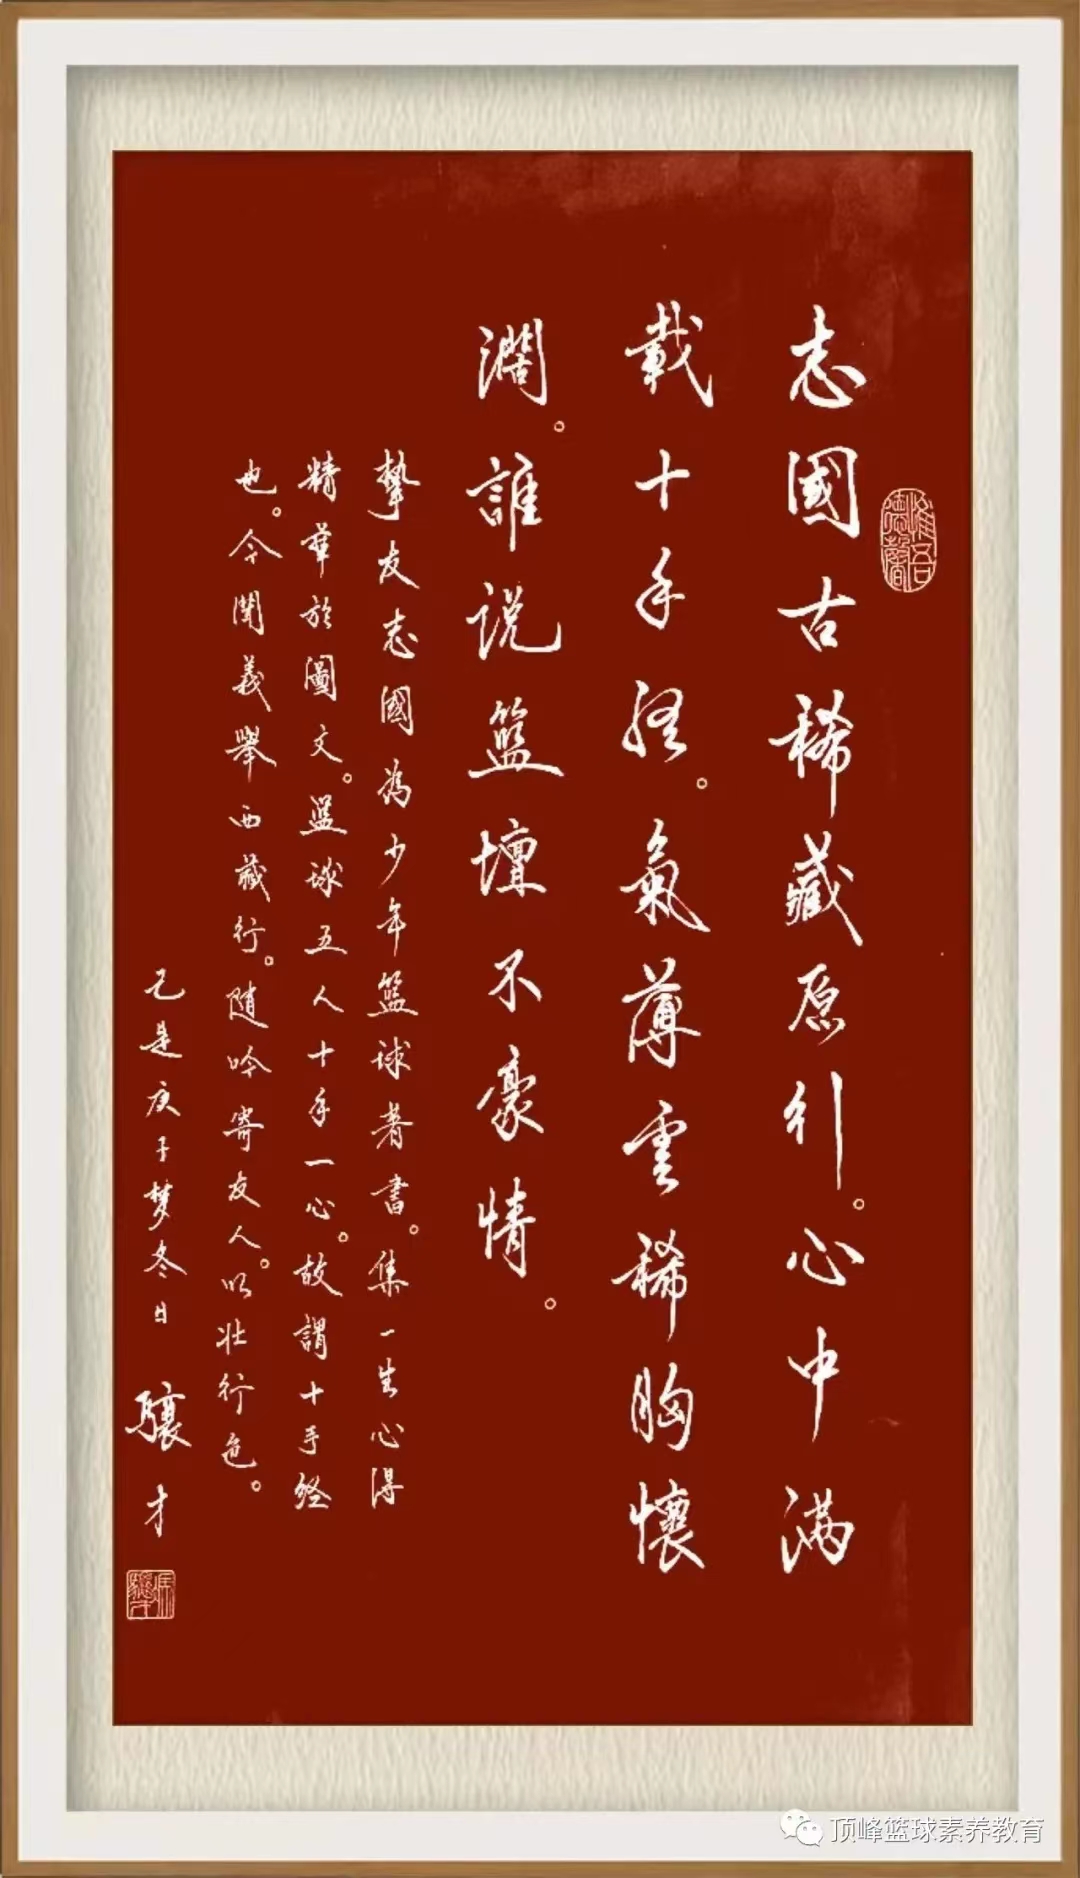 志國古稀藏原行。心中满
載十手經。氣薄雲稀胸懷
濶。誰说籃壇不豪情。
摯友志國為少年籃球著書。集一生心得
精華於圖文。籃球五人十手一心。故謂十手經
也。今聞義舉西藏行。随吟寄友人。以壯行色。
己是庚子梦冬日 驤才
惟吾德馨
顶峰篮球素养教育